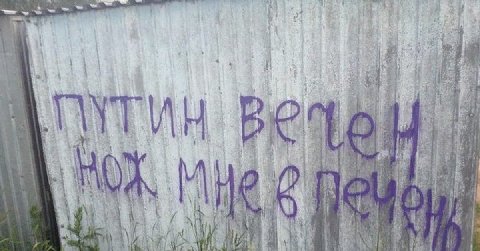 ПУТИН ВЕЧЕН
НОЖ МНЕ В ПЕЧЕНЬ